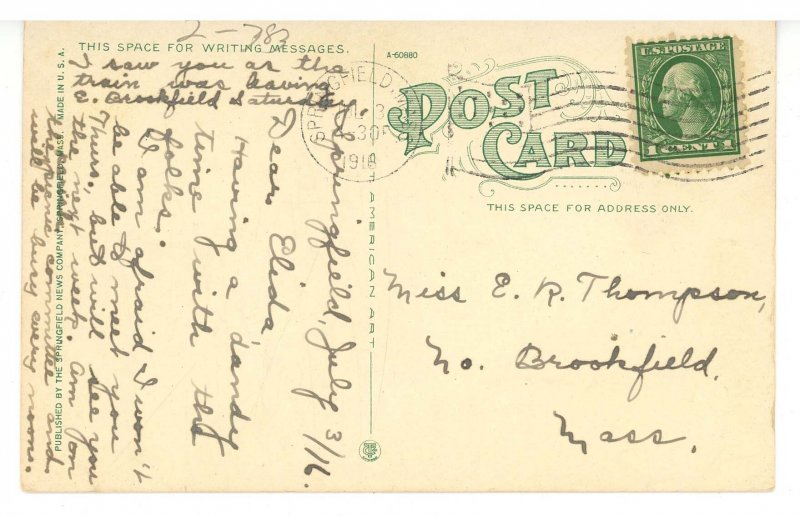 2-783
THIS SPACE FOR WRITING MESSAGES.
I saw you as the
train was leaving
E. Brookfield Saturday.
Springfield, July 3/16.
Dear Elida
Having a dandy
time with the
folks.
I am afraid I won't
be able to meet you
Thurs., but will see you
the next week. Am on
the committee and
will be busy every noon.
PUBLISHED BY THE SPRINGFIELD NEWS COMPANY, SPRINGFIELD, MASS. MADE IN U.S.A.
AMERICAN ART
A-60880
POST
CARD
SPRINGFIELD, M
3
30P
1916
U.S. POSTAGE
1 CENT 1
THIS SPACE FOR ADDRESS ONLY.
Miss E. R. Thompson,
No. Brookfield,
Mass.